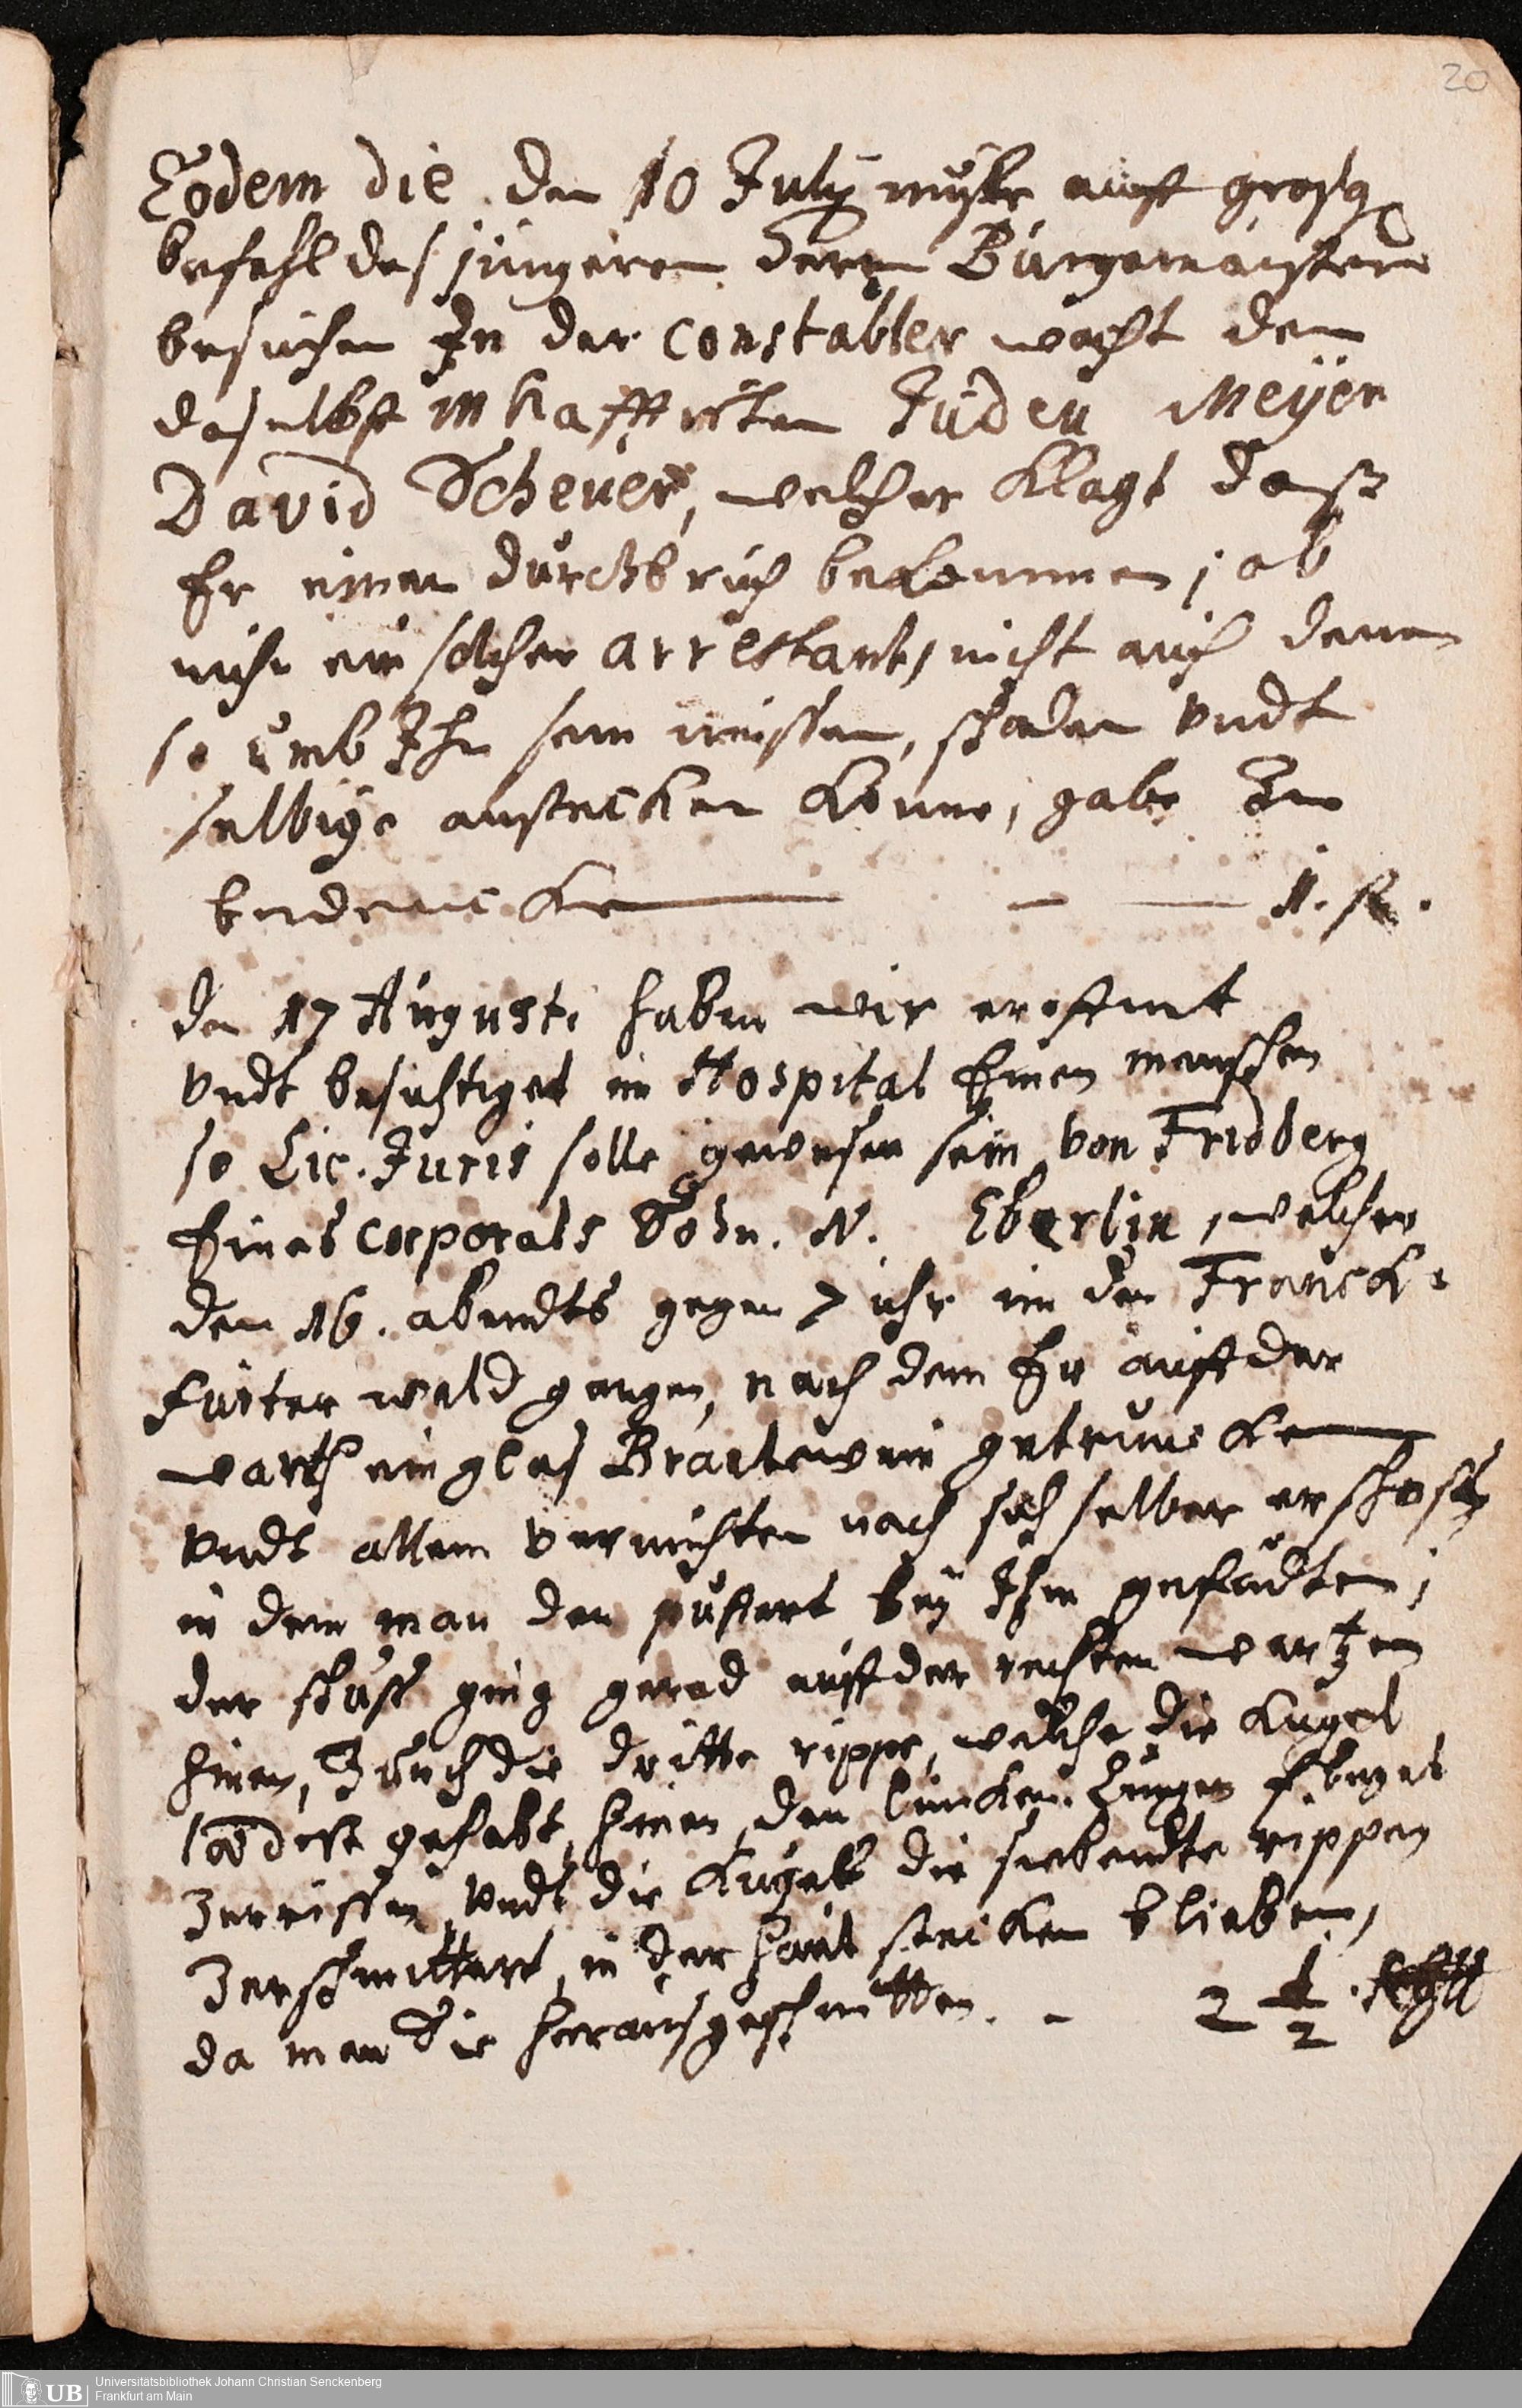 20
Eodem die den 10 July muste auff großg
befehl des jüngeren Herrn Burgemaisters
besuchen In der Constabler wacht den
daselbst inhafftirten Juden Meyer
David Scheuer, welcher Klagt daß
Er einen durchbruch bekommen; ob
nuhn ein solcher arrestant, nicht auch denen
so umb Ihn sein müssen, schaden undt
selbige anstecken Könne, gabe Zu
bedencken — — — 1. fl.
den 17 Augusti haben wir eroffnet
undt besichtiget im Hospital Einen menschen
so Lic. Juris solle gewesen sein von Fridberg
Eines corporals Sohn. N. Eberlin, welcher
den 16. abendts gegen 7 uhr in den Franck-
furter wald gangen, nach dem Er auff der
warth ein glas Brantewein getruncken
undt allem vermuhten nach sich selber erschossen
in dem man den puffert bey Ihm gefunden;
der schuß ging gerad auff der rechten wartzen
hinen, durch die dritte rippe, welche die Kugel
gehabt, hinen, den lincken Lungen flugel
Zerrissen, undt die Kugel die siebendte rippen
Zerschmettert, in der haut stecken blieben,
da man die herausgeschnitten. - 2 1/2
Universitätsbibliothek Johann Christian Senckenberg
Frankfurt am Main
UB